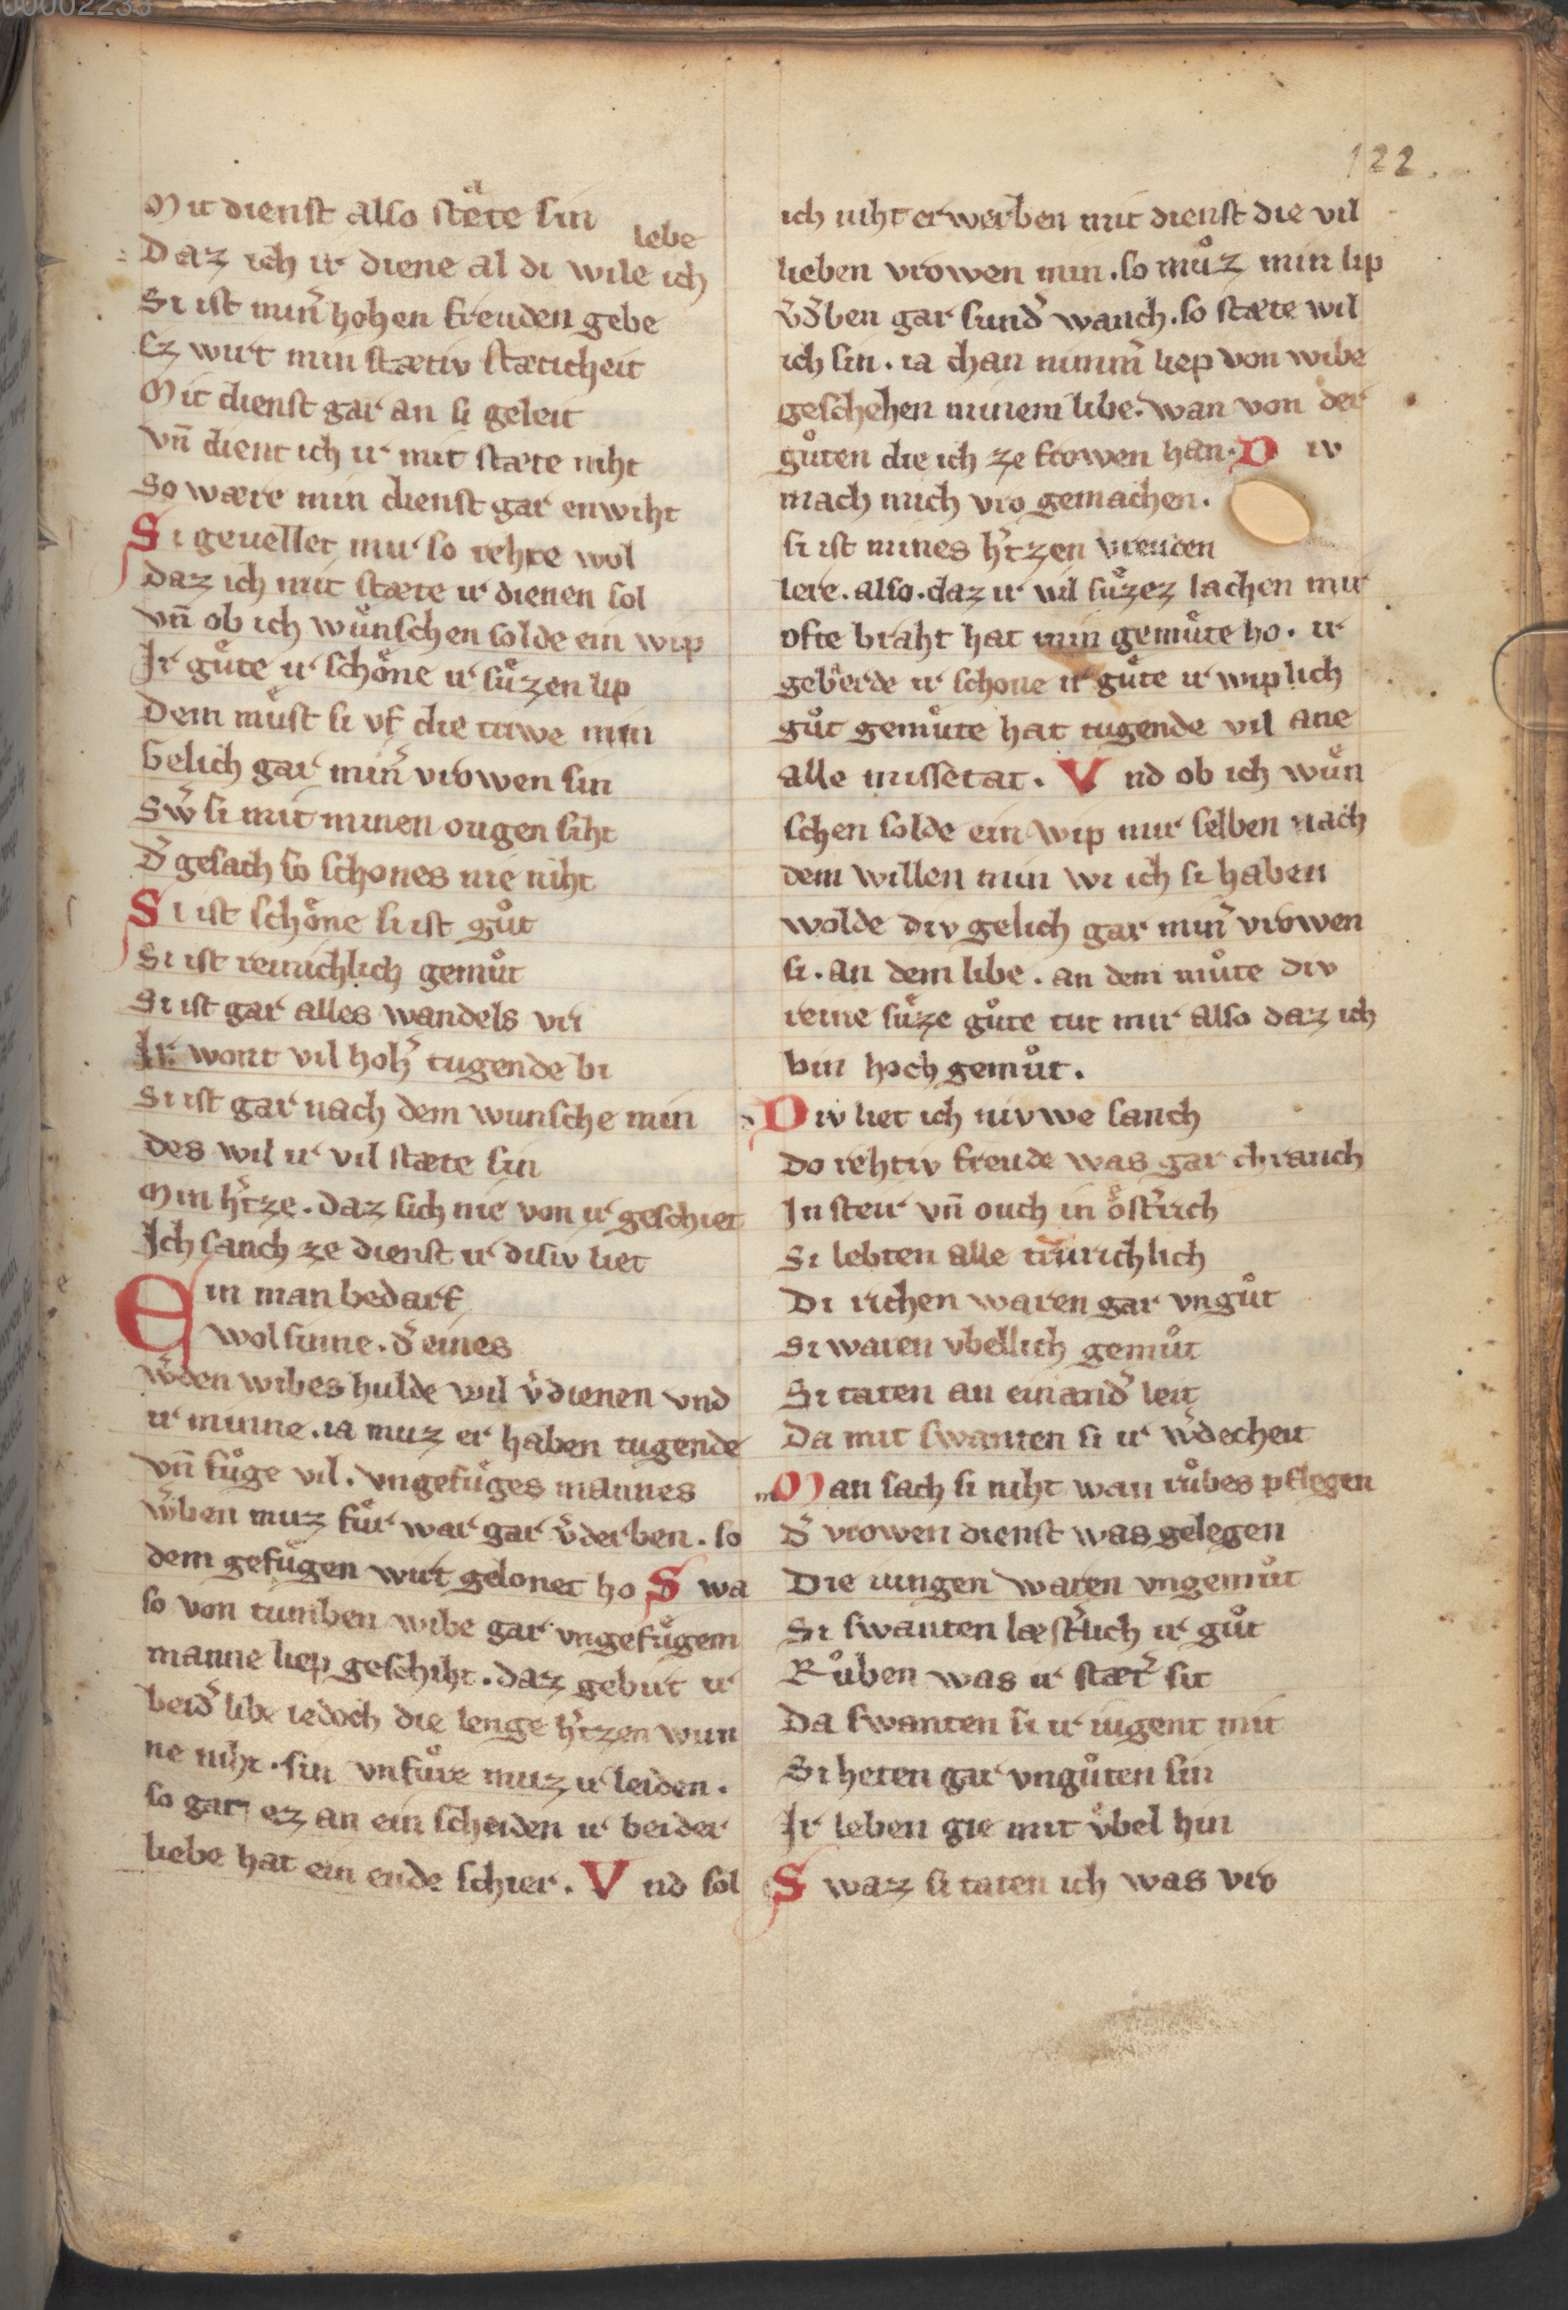 00002233
122.
Mit dienst also stæ̊te sin
lebe
Daz ich ir diene al di wile ich
Si ist min̄ hohen freuden gebe
Ez wirt min stætiv stæticheit
Mit dienst gar an si geleit
Vn̄ dient ich ir mit stæte niht
So wære min dienst gar enwiht
Si geuellet mir so rehte wol
daz ich mit stæte ir dienen sol
vn̄ ob ich wuͤnschen solde ein wip
Ir guͤte ir schoͤne ir suͤzen lip
Dem muͤst si vf die triwe min
Gelich gar min̄ vrowen sin
Sw̄ si mit minen ougen siht
d̄ gesach so schones nie niht
Si ist schoͤne si ist guͦt
Si ist reinichlich gemuͦt
Si ist gar alles wandels vri
Ir wont vil hoh̄ tugende bi
Si ist gar nach dem wunsche min
des wil ir vil stæte sin
Min h̄tze . daz sich nie von ir geschiet
Ich sanch ze dienst ir disiv liet
Ein man bedarf
wol sinne . d̄ eines
w̄den wibes hulde wil v̄dienen vnd
ir minne . ia muz er haben tugende
vn̄ fuͦge vil . vngefuͤges mannes
w̄ben muz fuͤr war gar v̄derben . so
dem gefuͤgen wirt gelonet ho Swa
so von tumben wibe gar vngefuͤgem
manne liep geschiht . daz gebirt ir
beid̄ libe iedoch die lenge h̄tzen wun
ne niht . sin vnfuͦre muz ir leiden .
so gar ez an ein scheiden ir beider
liebe hat ein ende schier . Vnd sol
ich niht erwerben mit dienst die vil
lieben vrowen min . so muͦz min lip
v̄d̄ben gar sund̄ wanch . so stæte wil
ich sin . ia chan nimm̄ liep von wibe
geschehen minem libe . wan von der
guͦten die ich ze frowen han . Div
mach mich vro gemachen .
si ist mines h̄tzen vreuden
lere . also . daz ir vil suͤzez lachen mir
ofte braht hat min gemuͤte ho . ir
geb̄erde ir schone ir guͤte ir wiplich
guͦt gemuͤte hat tugende vil ane
alle missetat . Vnd ob ich wuͤn
schen solde ein wip mir selben nach
dem willen min wi ich si haben
wolde div gelich gar min̄ vrowen
si . an dem libe . an dem muͦte div
reine suͤze guͦte tut mir also daz ich
bin hoch gemuͦt .
Div liet ich nivwe sanch
do rehtiv freude was gar chranch
In steir vn̄ ouch in oͤst̄rich
Si lebten alle trurichlich
Di richen waren gar vnguͦt
Si waren vbellich gemuͦt
Si taten an einand̄ leit
Da mit swanten si ir w̄decheit
Man sach si niht wan ruͦbes pflegen
d̄ vrowen dienst was gelegen
Die iungen waren vngemuͦt
Si swanten læst̄lich ir guͦt
Ruͦben was ir stæt̄ sit
Da swanten si ir iugent mit
Si heten gar vnguͦten sin
Ir leben gie mit vͤbel hin
Swaz si taten ich was vro